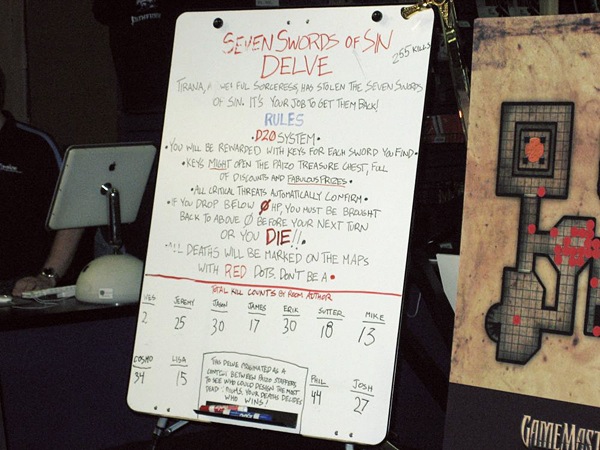 SEVEN SWORDS OF SIN
DELVE
255 KILLS
TIRANA, SORCERESS, HAS STOLEN THE SEVEN SWORDS
OF SIN. IT'S YOUR JOB TO GET THEM BACK!
RULES
• D20 SYSTEM •
• YOU WILL BE REWARDED WITH KEYS FOR EACH SWORD YOU FIND •
• KEYS MIGHT OPEN THE PAIZO TREASURE CHEST, FULL
OF DISCOUNTS AND FABULOUS PRIZES •
• ALL CRITICAL THREATS AUTOMATICALLY CONFIRM •
• IF YOU DROP BELOW Ø HP, YOU MUST BE BROUGHT
BACK TO ABOVE Ø BEFORE YOUR NEXT TURN
OR YOU DIE!!.
• ALL DEATHS WILL BE MARKED ON THE MAPS
WITH RED DOTS. DON'T BE A •
TOTAL KILL COUNTS BY ROOM AUTHOR
WES JEREMY JASON JAMES ERIK SUTTER MIKE
2 25 30 17 30 18 13
COSMO LISA PHIL JOSH
34 15 44 27
THIS DELVE ORIGINATED AS A
BETWEEN PAIZO STAFFERS
TO SEE WHO COULD DESIGN THE MOST
YOUR DEATHS DECIDES
WHO WINS!
GAMEMAST